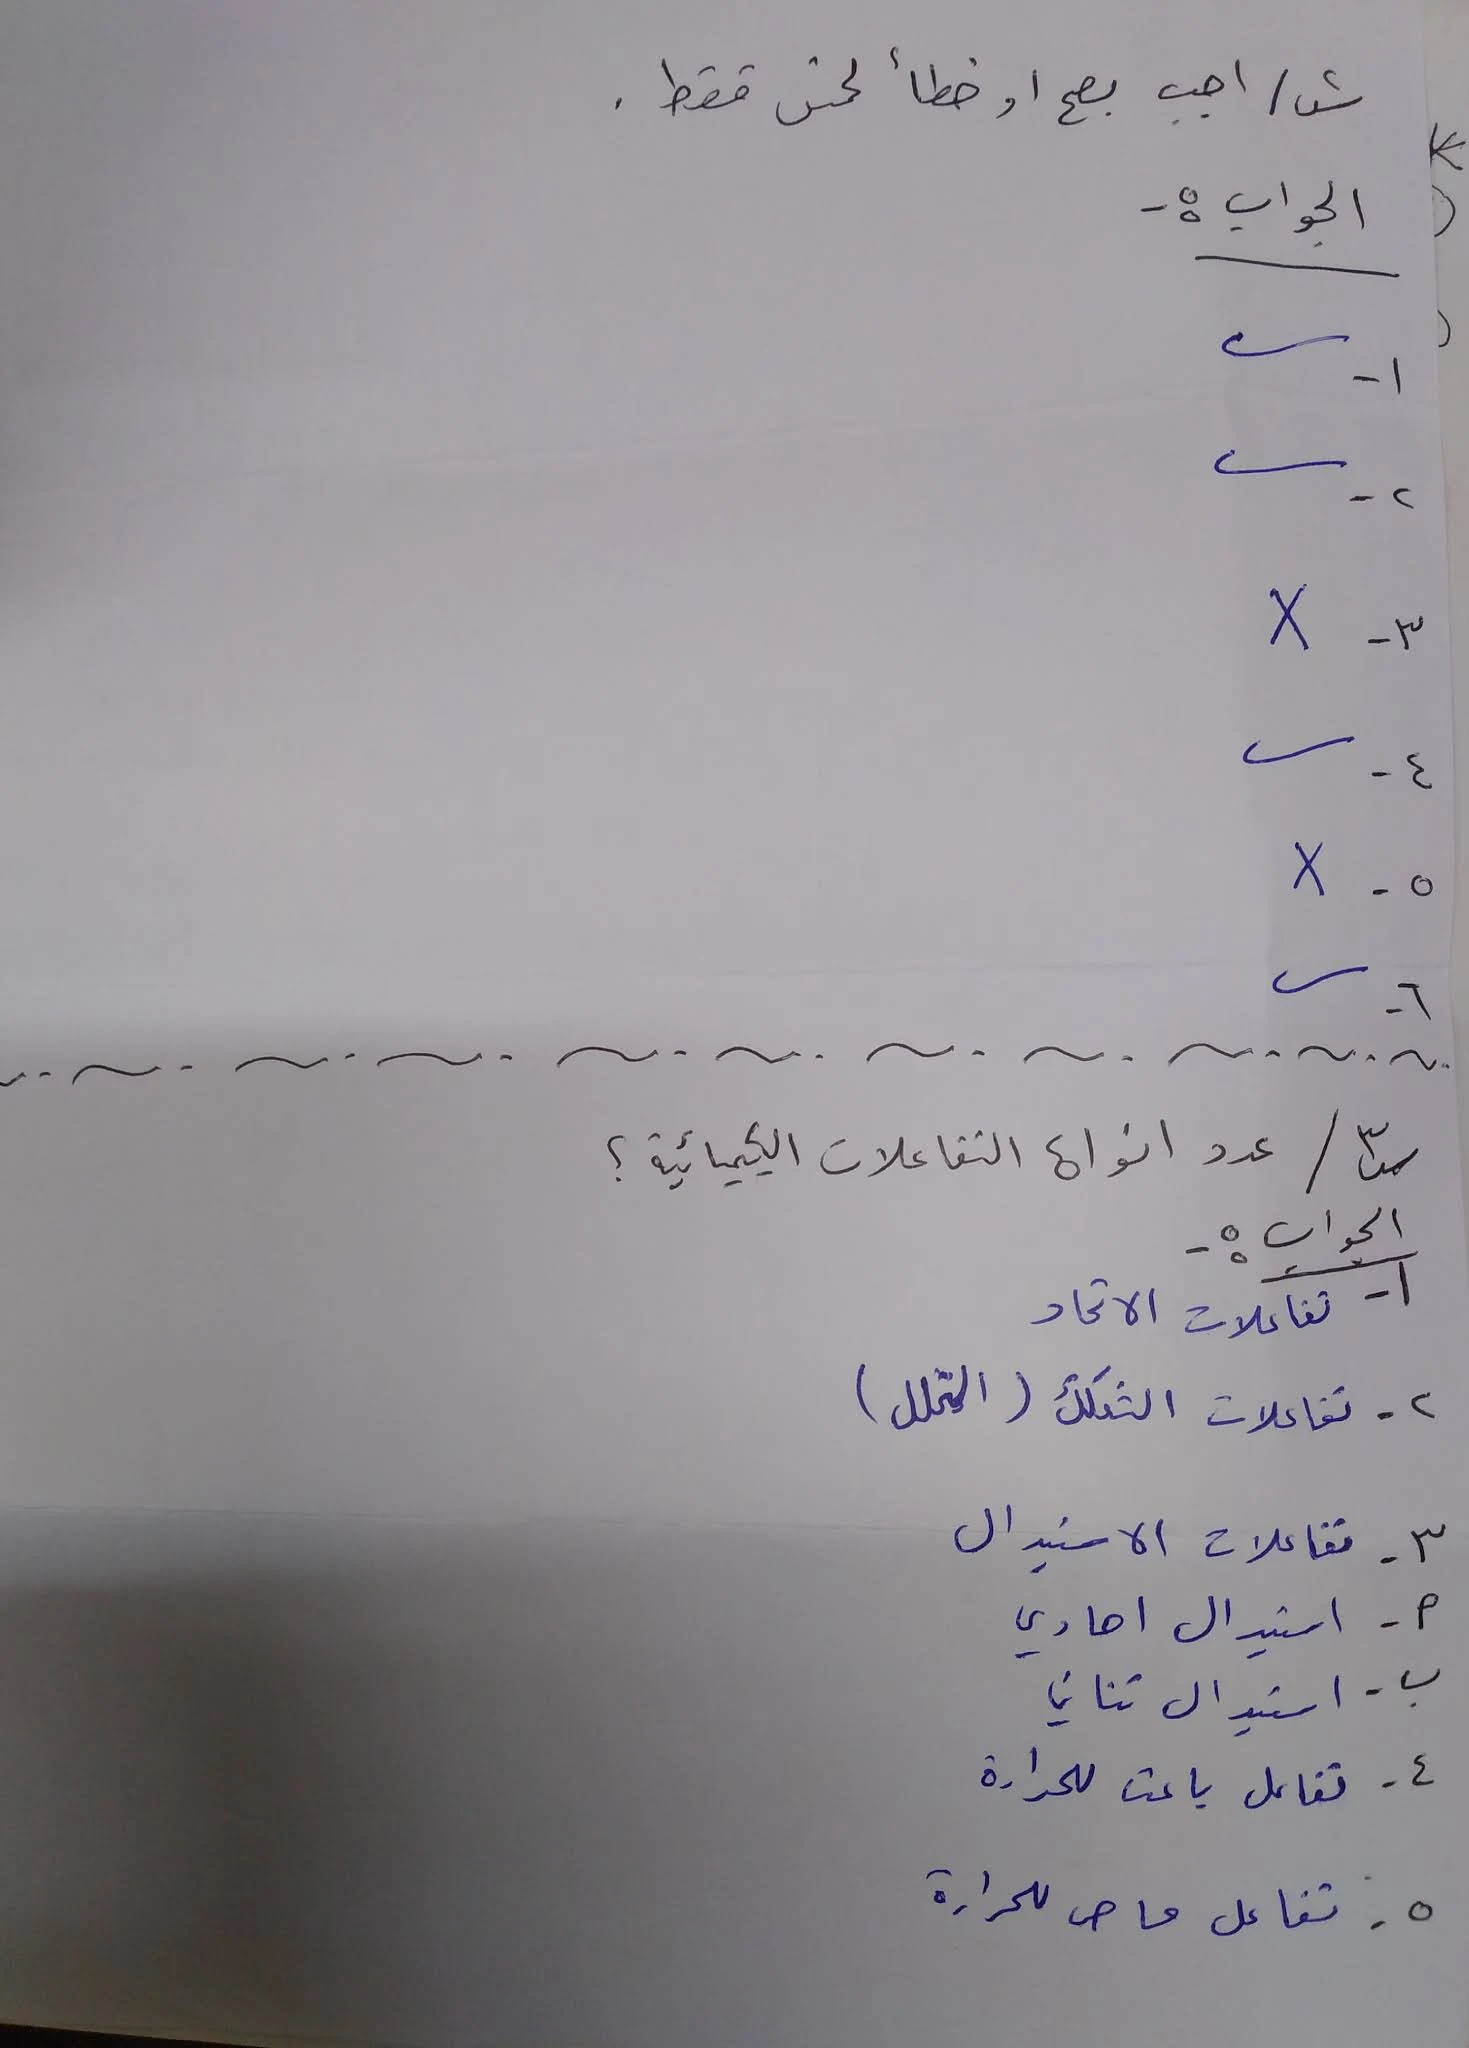 س٢/ اجب بصح او خطأ لخمس فقط .
الجواب :-
١- ✓
٢- ✓
٣- X
٤- ✓
٥- X
٦- ✓
س٣/ عدد انواع التفاعلات الكيميائية ؟
الجواب :-
١- تفاعلات الاتحاد
٢- تفاعلات التفكك (التحلل)
٣- تفاعلات الاستبدال
م- استبدال احادي
ب- استبدال ثنائي
٤- تفاعل باعث للحرارة
٥- تفاعل ماص للحرارة